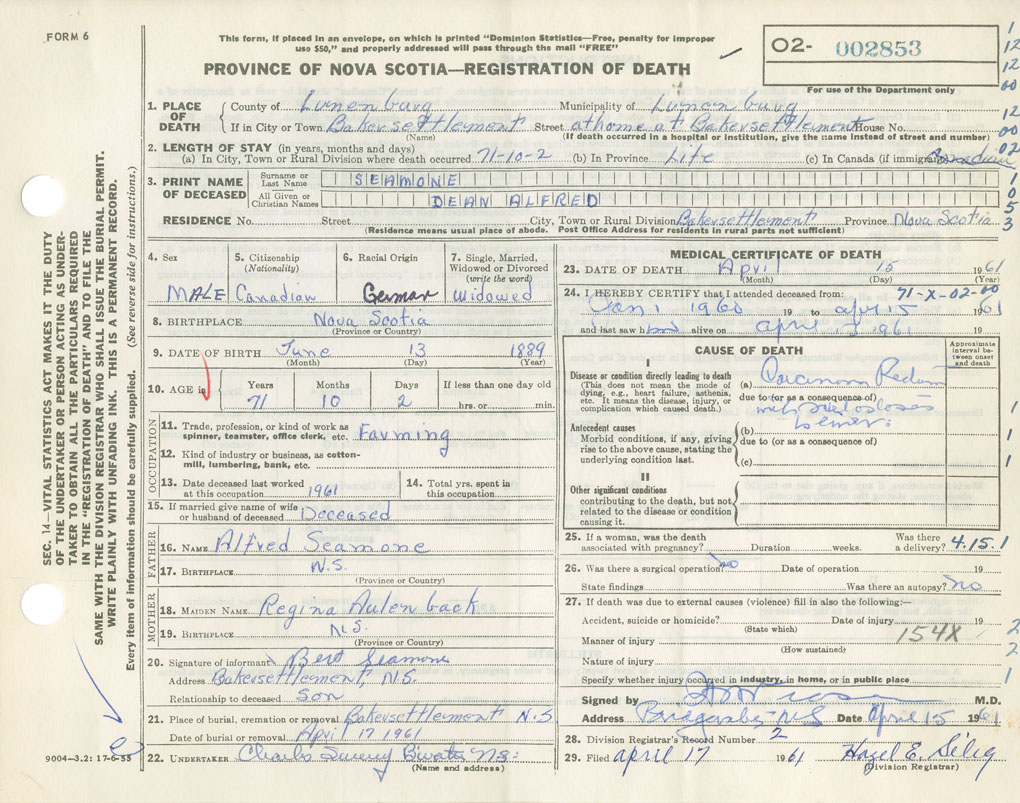 FORM 6
This form, if placed in an envelope, on which is printed "Dominion Statistics—Free, penalty for improper
use $50," and properly addressed will pass through the mail "FREE"
O2- 002853
For use of the Department only
PROVINCE OF NOVA SCOTIA—REGISTRATION OF DEATH
1. PLACE OF DEATH County of Lunenburg Municipality of Lunenburg
If in City or Town Bakersettlement Street at home at Bakersettlement House No.
(Name) (If death occurred in a hospital or institution, give the name instead of street and number)
2. LENGTH OF STAY (in years, months and days)
(a) In City, Town or Rural Division where death occurred 71-10-2 (b) In Province Life (c) In Canada (if immigrant)
3. PRINT NAME OF DECEASED
Surname or Last Name SEAMONE
All Given or Christian Names DEAN ALFRED
RESIDENCE No. Street City, Town or Rural Division Bakersettlement Province Nova Scotia
(Residence means usual place of abode. Post Office Address for residents in rural parts not sufficient)
4. Sex MALE
5. Citizenship (Nationality) Canadian
6. Racial Origin German
7. Single, Married, Widowed or Divorced (write the word) Widowed
8. BIRTHPLACE Nova Scotia
(Province or Country)
9. DATE OF BIRTH June 13 1889
(Month) (Day) (Year)
10. AGE in Years Months Days If less than one day old
71 10 2 hrs. or min.
OCCUPATION
11. Trade, profession, or kind of work as spinner, teamster, office clerk, etc. Farming
12. Kind of industry or business, as cotton-mill, lumbering, bank, etc.
13. Date deceased last worked at this occupation 1961
14. Total yrs. spent in this occupation
15. If married give name of wife or husband of deceased Deceased
FATHER
16. NAME Alfred Seamone
17. BIRTHPLACE N.S.
(Province or Country)
MOTHER
18. MAIDEN NAME Regina Aulenback
19. BIRTHPLACE N.S.
(Province or Country)
20. Signature of informant Bert Seamone
Address Bakersettlement, N.S.
Relationship to deceased Son
21. Place of burial, cremation or removal Bakersettlement N.S
Date of burial or removal April 17 1961
22. UNDERTAKER Charles N.S.
(Name and address)
MEDICAL CERTIFICATE OF DEATH
23. DATE OF DEATH April 15 1961
(Month) (Day) (Year)
24. I HEREBY CERTIFY that I attended deceased from: 71-X-02-00
Jan 1 1960 19 to april 15 1961
and last saw him alive on april 1961 19
CAUSE OF DEATH
Approximate interval between onset and death
I
Disease or condition directly leading to death
(This does not mean the mode of dying, e.g., heart failure, asthenia, etc. It means the disease, injury, or complication which caused death.)
(a) Carcinoma Rectum
due to (or as a consequence of)
with
Antecedent causes
Morbid conditions, if any, giving rise to the above cause, stating the underlying condition last.
(b)
due to (or as a consequence of)
(c)
II
Other significant conditions
contributing to the death, but not related to the disease or condition causing it.
25. If a woman, was the death associated with pregnancy? Duration weeks. Was there a delivery? 4.15.1
26. Was there a surgical operation? no Date of operation 19
State findings Was there an autopsy? no
27. If death was due to external causes (violence) fill in also the following:—
Accident, suicide or homicide? Date of injury 19
(State which)
Manner of injury 154X
(How sustained)
Nature of injury
Specify whether injury occurred in industry, in home, or in public place
Signed by M.D.
Address Date April 15 1961
28. Division Registrar's Record Number 2
29. Filed april 17 1961 Hazel E. Selig
(Division Registrar)
SEC. 14—VITAL STATISTICS ACT MAKES IT THE DUTY
OF THE UNDERTAKER OR PERSON ACTING AS UNDER-
TAKER TO OBTAIN ALL THE PARTICULARS REQUIRED
IN THE "REGISTRATION OF DEATH" AND TO FILE THE
SAME WITH THE DIVISION REGISTRAR WHO SHALL ISSUE THE BURIAL PERMIT.
WRITE PLAINLY WITH UNFADING INK. THIS IS A PERMANENT RECORD.
Every item of information should be carefully supplied. (See reverse side for instructions.)
9004—3.2: 17-6-55
1
12
12
00
12
00
02
1
0
5
3
1
1
1
2
2
1